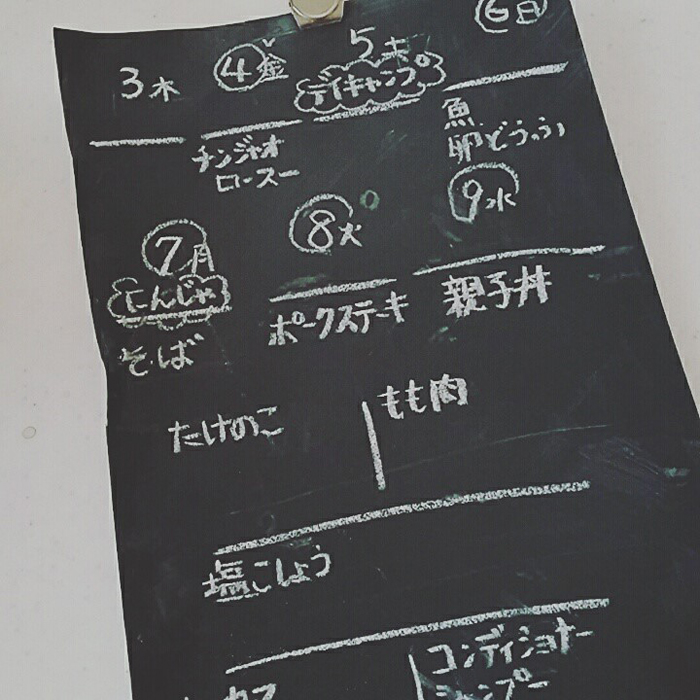 3木
④金
5土
⑥日
デイキャンプ
チンジャオ
ロースー
魚
卵どうふ
⑦月
⑧火
⑨水
にんじゃ
そば
ポークステーキ
親子丼
たけのこ
もも肉
塩こしょう
コンディショナー
シャンプー